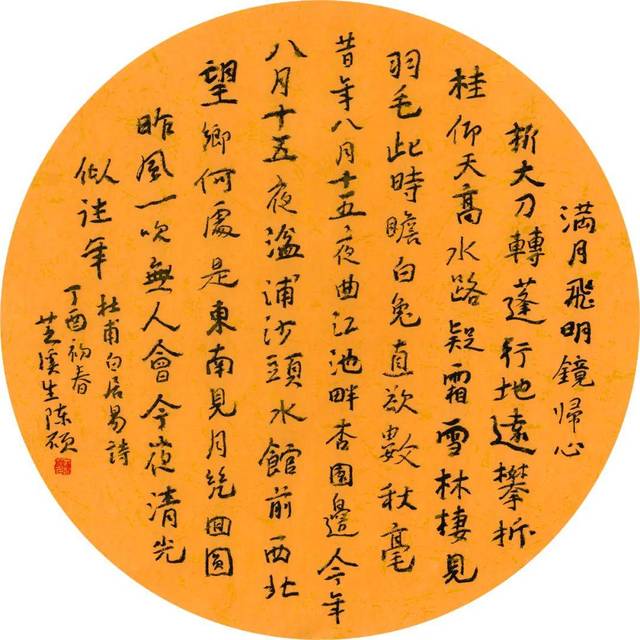 満月飛明鏡歸心
折大刀轉蓬行地遠攀折
桂仰天高水路疑霜雪林棲見
羽毛此時瞻白兔直欲數秋毫
昔年八月十五夜曲江池畔杏園邊今年
八月十五夜湓浦沙頭水館前西北
望鄉何處是東南見月幾回圓
昨風一吹無人會今夜清光
似往年
杜甫白居易詩
丁酉初春
芝溪生陳碩